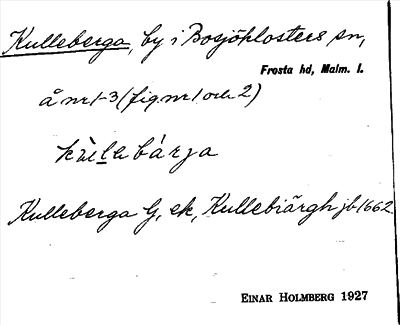 Kulleberga, by i Bosjöklosters sn,
Frosta hd, Malm. l.
å nr 1-3 (fig nr 1 och 2)
Kulleberga G, ek, Kullebiärgh jb 1662
EINAR HOLMBERG 1927